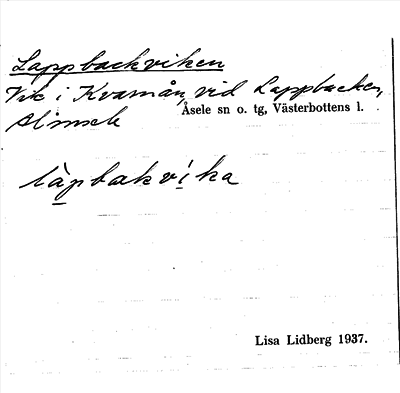 Lappbackviken
Vik i Kvarnån, vid Lappbacken,
Åsele sn o. tg, Västerbottens l.
Alimsele
làpbakvika
Lisa Lidberg 1937.